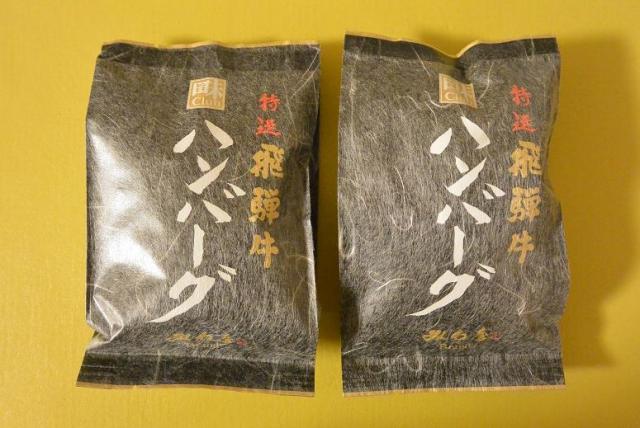 特選
飛騨牛
ハンバーグ
特選
飛騨牛
ハンバーグ